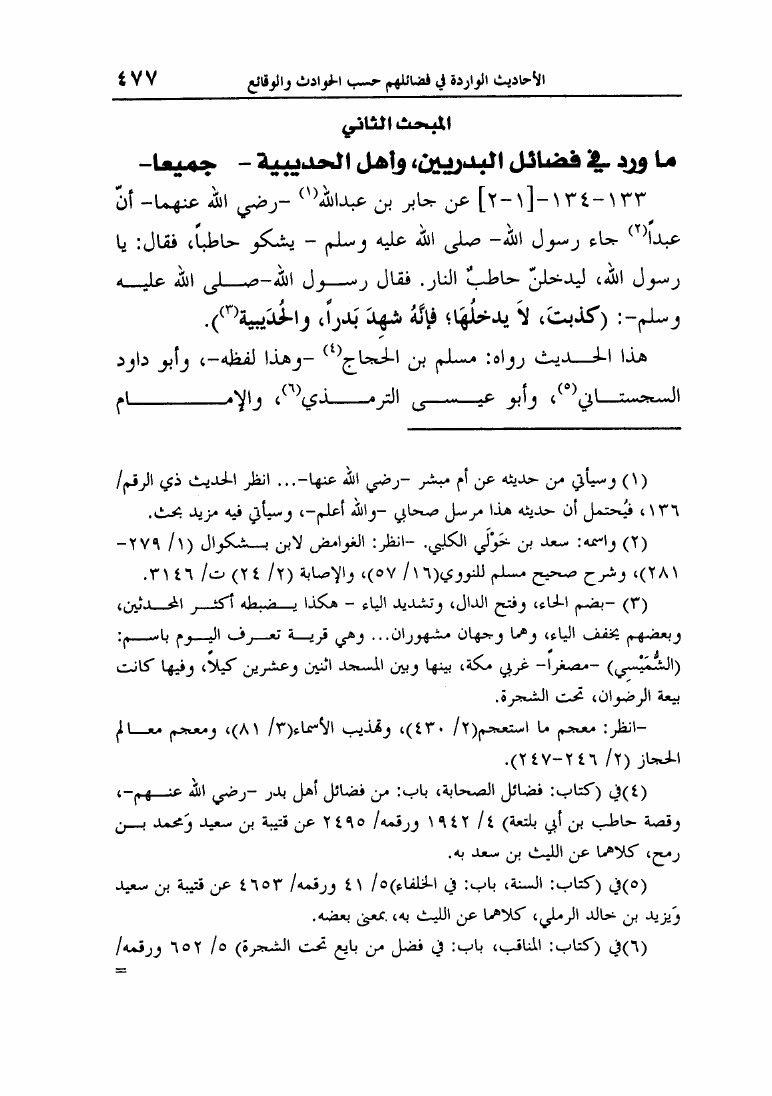 الأحاديث الواردة في فضائلهم حسب الحوادث والوقائع ٤٧٧
المبحث الثاني
ما ورد في فضائل البدريين، وأهل الحديبية - جميعا-
١٣٣-١٣٤-[١-٢] عن جابر بن عبدالله(١) -رضي الله عنهما- أنّ
عبداً(٢) جاء رسول الله- صلى الله عليه وسلم - يشكو حاطباً، فقال: يا
رسول الله، ليدخلنّ حاطبٌ النار. فقال رســول الله-صــلى الله عليــه
وسلم-: (كذبتَ، لاَ يدخلُهَا؛ فإنَّهُ شهِدَ بَدراً، والحُدَيبية(٣)).
هذا الحــديث رواه: مسلم بن الحجاج(٤) -وهذا لفظه-، وأبو داود
السجستــاني(٥)، وأبو عيــسى الترمــذي(٦)، والإمــام
(١) وسيأتي من حديثه عن أم مبشر -رضي الله عنها-... انظر الحديث ذي الرقم/
١٣٦، فيُحتمل أن حديثه هذا مرسل صحابي -والله أعلم-، وسيأتي فيه مزيد بحث.
(٢) واسمه: سعد بن خَوْلَي الكلبي. -انظر: الغوامض لابن بــشكوال (١/ ٢٧٩-
٢٨١)، وشرح صحيح مسلم للنووي(١٦/ ٥٧)، والإصابة (٢/ ٢٤) ت/ ٣١٤٦.
(٣) -بضم الحاء، وفتح الدال، وتشديد الياء - هكذا يــضبطه أكثــر المحــدثين،
وبعضهم يخفف الياء، وهما وجهان مشهوران... وهي قريــة تعــرف اليــوم باســم:
(الشُّمَيْسِي) -مصغراً- غربي مكة، بينها وبين المسجد اثنين وعشرين كيلاً، وفيها كانت
بيعة الرضوان، تحت الشجرة.
-انظر: معجم ما استعجم(٢/ ٤٣٠)، وتهذيب الأسماء(٣/ ٨١)، ومعجم معــالم
الحجاز (٢/ ٢٤٦-٢٤٧).
(٤)في (كتاب: فضائل الصحابة، باب: من فضائل أهل بدر -رضي الله عنــهم-،
وقصة حاطب بن أبي بلتعة) ٤/ ١٩٤٢ ورقمه/ ٢٤٩٥ عن قتيبة بن سعيد وَمحمد بــن
رمح، كلاهما عن الليث بن سعد به.
(٥)في (كتاب: السنة، باب: في الخلفاء)٥/ ٤١ ورقمه/ ٤٦٥٣ عن قتيبة بن سعيد
وَيزيد بن خالد الرملي، كلاهما عن الليث به، بمعنى بعضه.
(٦)في (كتاب: المناقب، باب: في فضل من بايع تحت الشجرة) ٥/ ٦٥٢ ورقمه/
=